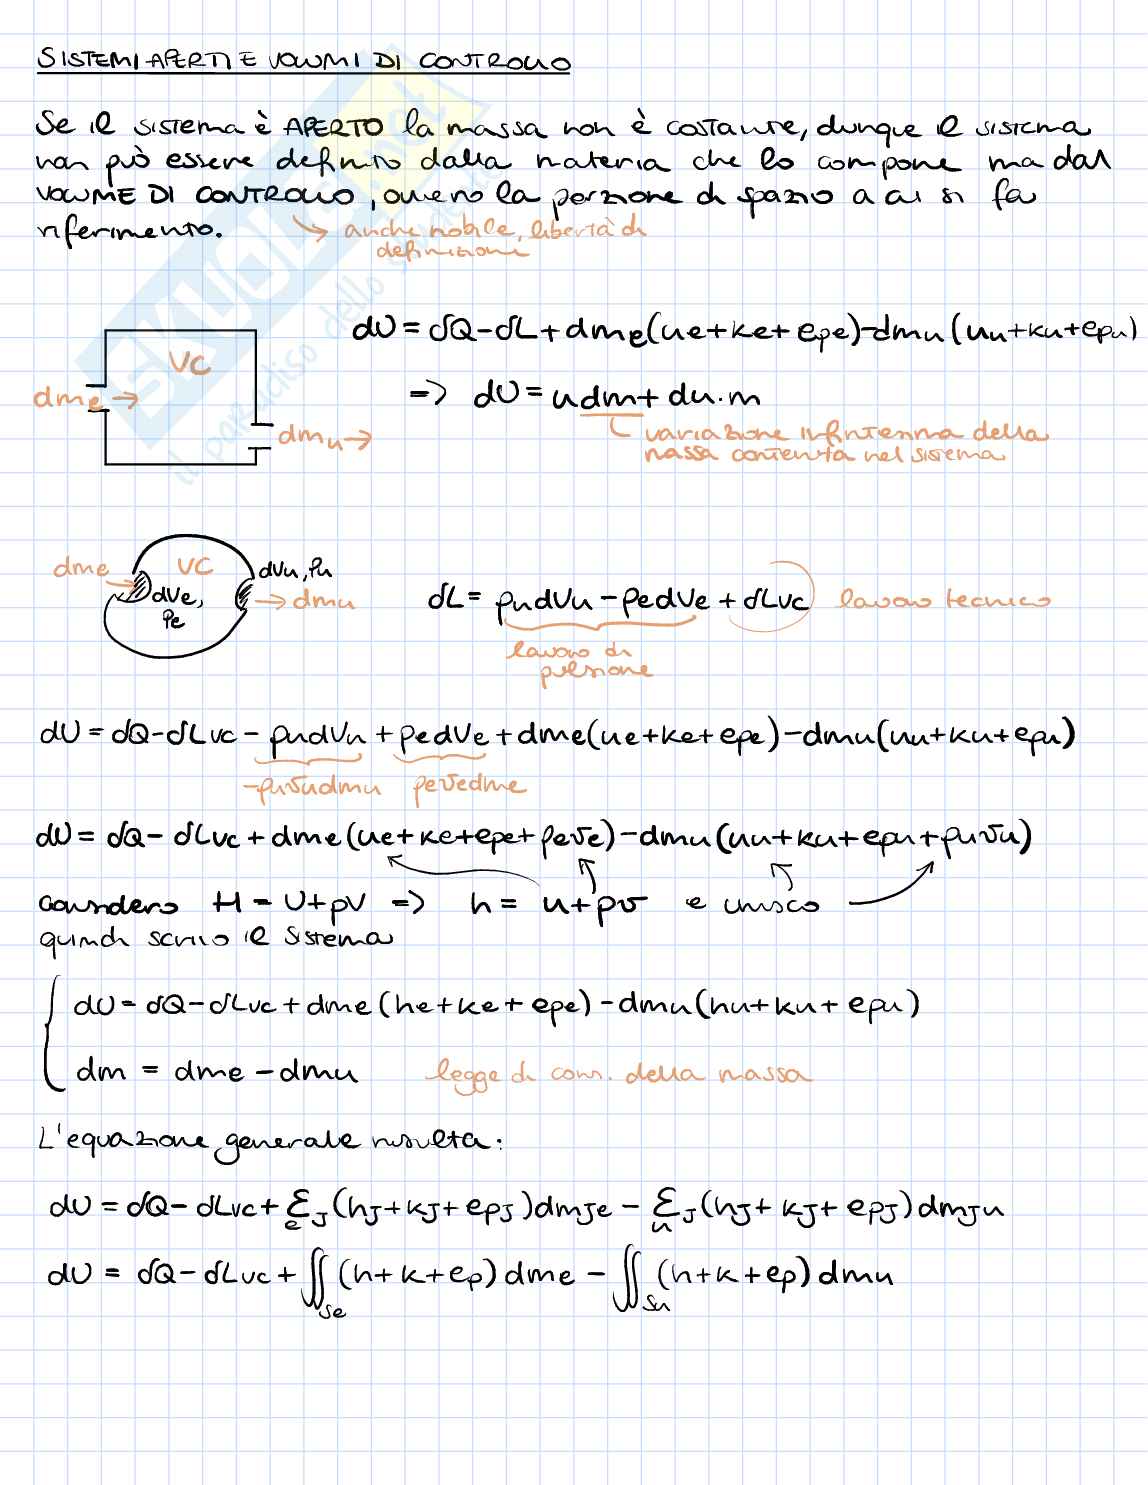 SISTEMI APERTI E VOLUMI DI CONTROLLO
Se il sistema è APERTO la massa non è costante, dunque il sistema
non può essere definito dalla materia che lo compone ma dal
VOLUME DI CONTROLLO, ovvero la porzione di spazio a cui si fa
riferimento.
→ anche mobile, libertà di
definizioni
dU = δQ - δL + dme(ue + ke + epe) - dmu(uu + ku + epu)
VC
dme →
=> dU = u dm + du · m
dmu →
variazione infinitesima della
massa contenuta nel sistema
dme
VC
dVu, Pu
dVe,
Pe
→ dmu
δL = pudVu - pedVe + δLvc lavoro tecnico
lavoro di
pulsione
dU = δQ - δLvc - pudVu + pedVe + dme(ue + ke + epe) - dmu(uu + ku + epu)
-puvudmu pevedme
dU = δQ - δLvc + dme(ue + ke + epe + peve) - dmu(uu + ku + epu + puvu)
considero H = U + pV => h = u + pv e unisco
quindi scrivo il sistema
dU = δQ - δLvc + dme(he + ke + epe) - dmu(hu + ku + epu)
dm = dme - dmu legge di cons. della massa
L'equazione generale risulta:
dU = δQ - δLvc + Σe J(hJ + kJ + epJ)dmJe - Σu J(hJ + kJ + epJ)dmJu
dU = δQ - δLvc + ∬Se (h + k + ep) dme - ∬Su (h + k + ep) dmu
SKUOLA.net
il paradiso dello studente